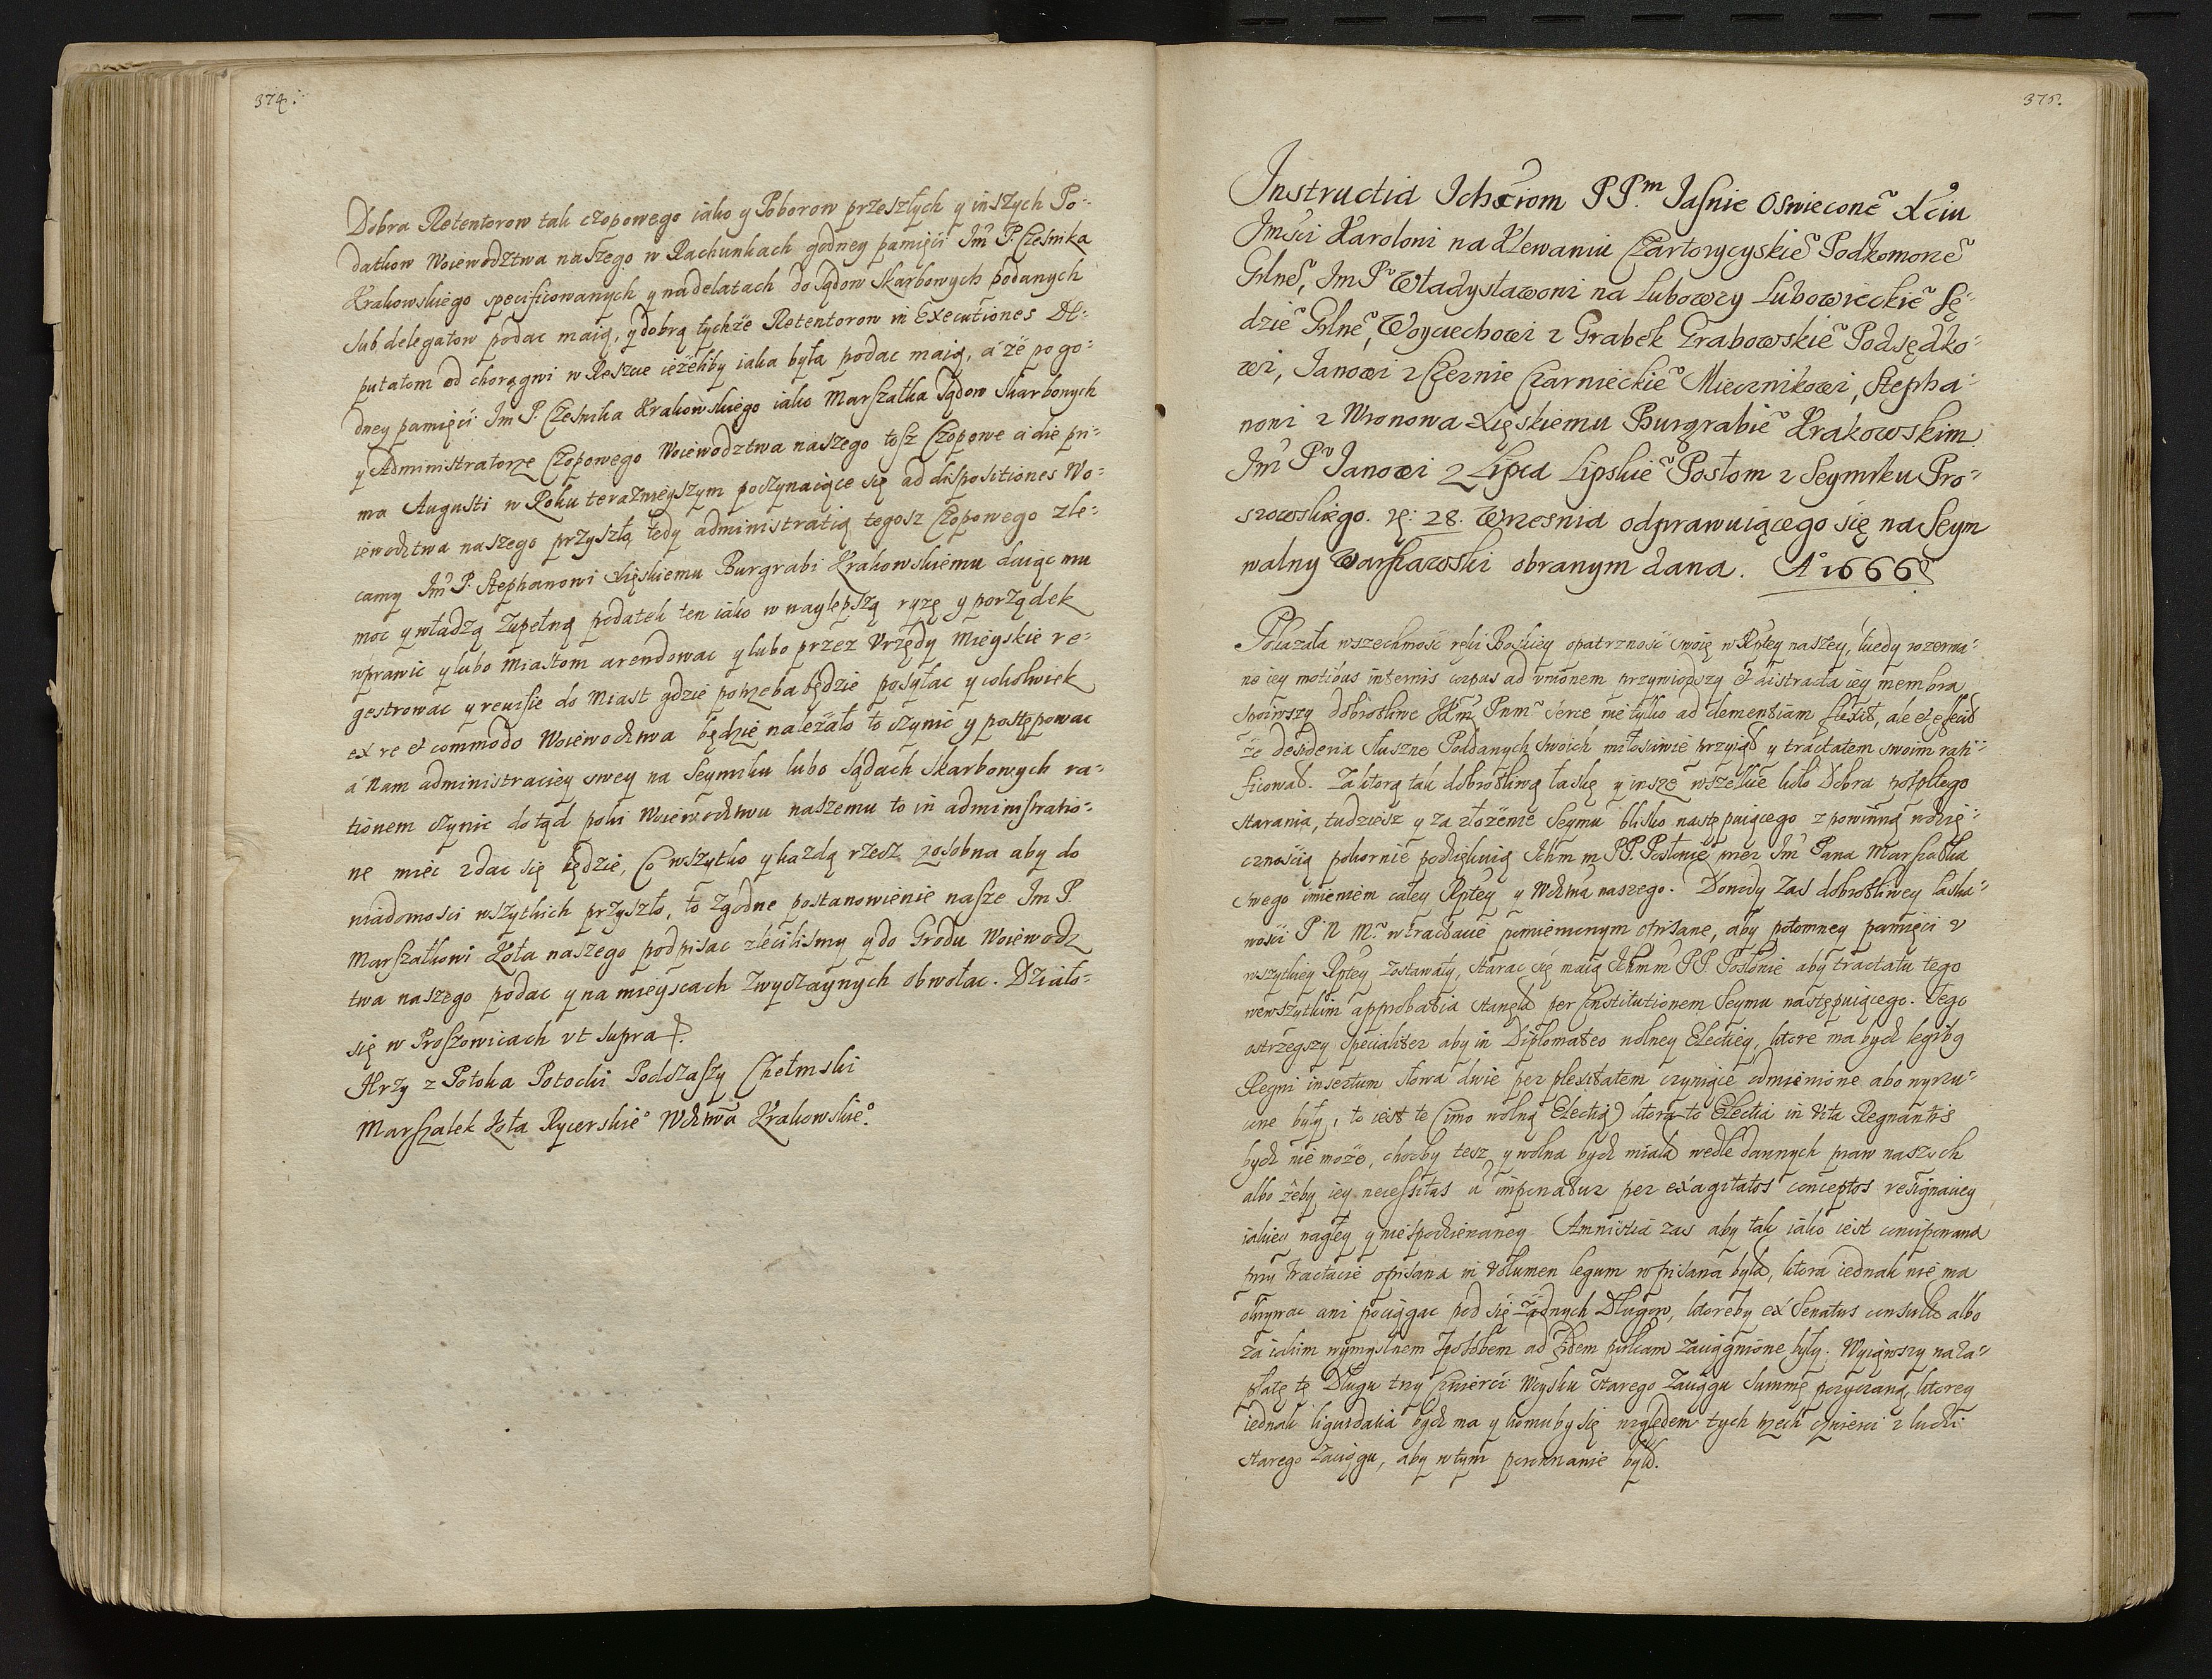 374.
Dobra Retentorow tak czopowego iako y Poborow przeszłych y inszych Po-
datkow Woiewodztwa naszego w Rachunkach godney pamięci Im P. Czesnika
Krakowskiego specificowanych y na delatach do sądow Skarbowych podanych
sub delegatow podac maią, y dobra tychże Retentorow in Executiones De-
putatom od chorągwi w Reszcie ieżeliby iaka była podac maią, a że po go-
dney pamięci Im P. Czesnika Krakowskiego iako Marszałka sądow skarbowych
y Administratorze Czopowego Woiewodztwa naszego tosz Czopowe a die pri-
ma Augusti w Roku terazniejszym poczynaiące się ad dispositiones Wo-
iewodztwa naszego przyszło, tedy administratią tegosz Czopowego zle-
camy Im P. Stephanowi Xięskiemu Burgrabi Krakowskiemu daiąc mu
moc y władzą zupełną podatek ten iako w naylepszą ryzę y porządek
wprawic y lubo Miastom arendowac y lubo przez Vrzędy Mieyskie re-
gestrowac y reuisie do Miast gdzie potrzeba będzie posyłac y cokolwiek
ex re et commodo Woiewodztwa będzie należało to czynic y postępowac
a Nam administraciey swey na Seymiku lubo sądach skarbowych ra-
tionem czynic dotąd poki Woiewodztwu naszemu to in administratio-
ne miec zdac się będzie, Co wszytko y kazdą rzecz zosobna aby do
wiadomosci wszytkich przyszło, to zgodne postanowienie nasze Im P.
Marszałkowi Koła naszego podpisac zlecilismy y do Grodu Woiewodz
twa naszego podac y na mieyscach zwyczaynych obwołac. Działo-
się w Proszowicach vt supra
Jerzy z Potoka Potocki Podczaszy Chełmski
Marszałek Koła Rycerskie° Wdztwa Krakowskie°.
375.
Instructia Ichmciom PP.m Iasnie Oswiecone° Xciu
Imsci Karolowi na Klewaniu Czartorycyskie° Podkomorze°
Grlne°, Im P° Władysławowi na Lubowzy Lubowieckie° Sę-
dzie° Grlne°, Woyciechowi z Grabek Grabowskie° Podsędko-
wi, Ianowi z Czernie Czarnieckie° Miecznikowi, Stepha-
nowi z Wronowa Xięskiemu Burgrabie° Krakowskim
Im P° Ianowi z Lipia Lipskie° Posłom z Seymiku Pro-
szowskiego. 28. Wrzesnia odprawuiącego się na Seym
walny Warszawski obranym dana. A° 1666
Pokazała wszechmosc ręki Boskiey opatrznosc swoię w Rptey naszey, kiedy rozerwa-
ne iey motibus internis corpus ad vnionem przywiodszy et distracta iey membra
spoiwszy dobrotliwe Serce nie tylko ad clementiam flexit, ale et effecit
że desideria słuszne Poddanych swoich miłosciwie przyiął y tractatem swoim rati-
ficował. Za ktorą tak dobrotliwą łaskę y insze wszelkie koło Dobra pospltego
starania, tudziesz y za złożenie Seymu blisko następuiącego z powinną wdzię-
cznoscią pokornie podziękuią Ichm m PP. Posłowie przez Im Pana Marszałka
swego imieniem całey Rptey y Wdztwa naszego. Dowody zas dobrotliwey łaska-
wosci P N M. w tractacie pomienionym opisane, aby potomney pamięci v
wszytkiey Rptey zostawały, starac się maią Ichmm PP Posłowie aby tractatu tego
wewszytkim approbatia stanęła per Constitutionem Seymu następuiącego. Tego
ostrzegszy specialiter aby in Diplomate wolney Electiey, ktore ma bydz legibg
Regni insertum słowa dwie perplexitatem czyniące odmienione abo wyrzu-
cone były, to iest te (imo wolną Electią) ktora to Electia in vita Regnantis
bydz nie może, chocby tesz y wolna bydz miała wedle dawnych praw naszych
albo żeby iey necessitas imponatur per exagitatos conceptos resignaciey
iakiey nagłey y niespodziewaney. Amnistia zas aby tak iako iest concipowana
przy tractacie opisana in Volumen legum wpisana była, ktora iednak nie ma
okrywac ani pociągac pod się żadnych Długow, ktoreby ex Senatus consulto albo
za iakim wymyslnem sposobem ad fidem publicam zaciągnione były. Wyiąwszy na za-
płatę tę Długu trzy Cwierci Woysku starego Zaciągu summę pozyczaną, ktorey
iednak liquidatia bydz ma y komuby się względem tych trzech cwierci z ludzi
starego Zaciągu, aby w tym porownanie było.